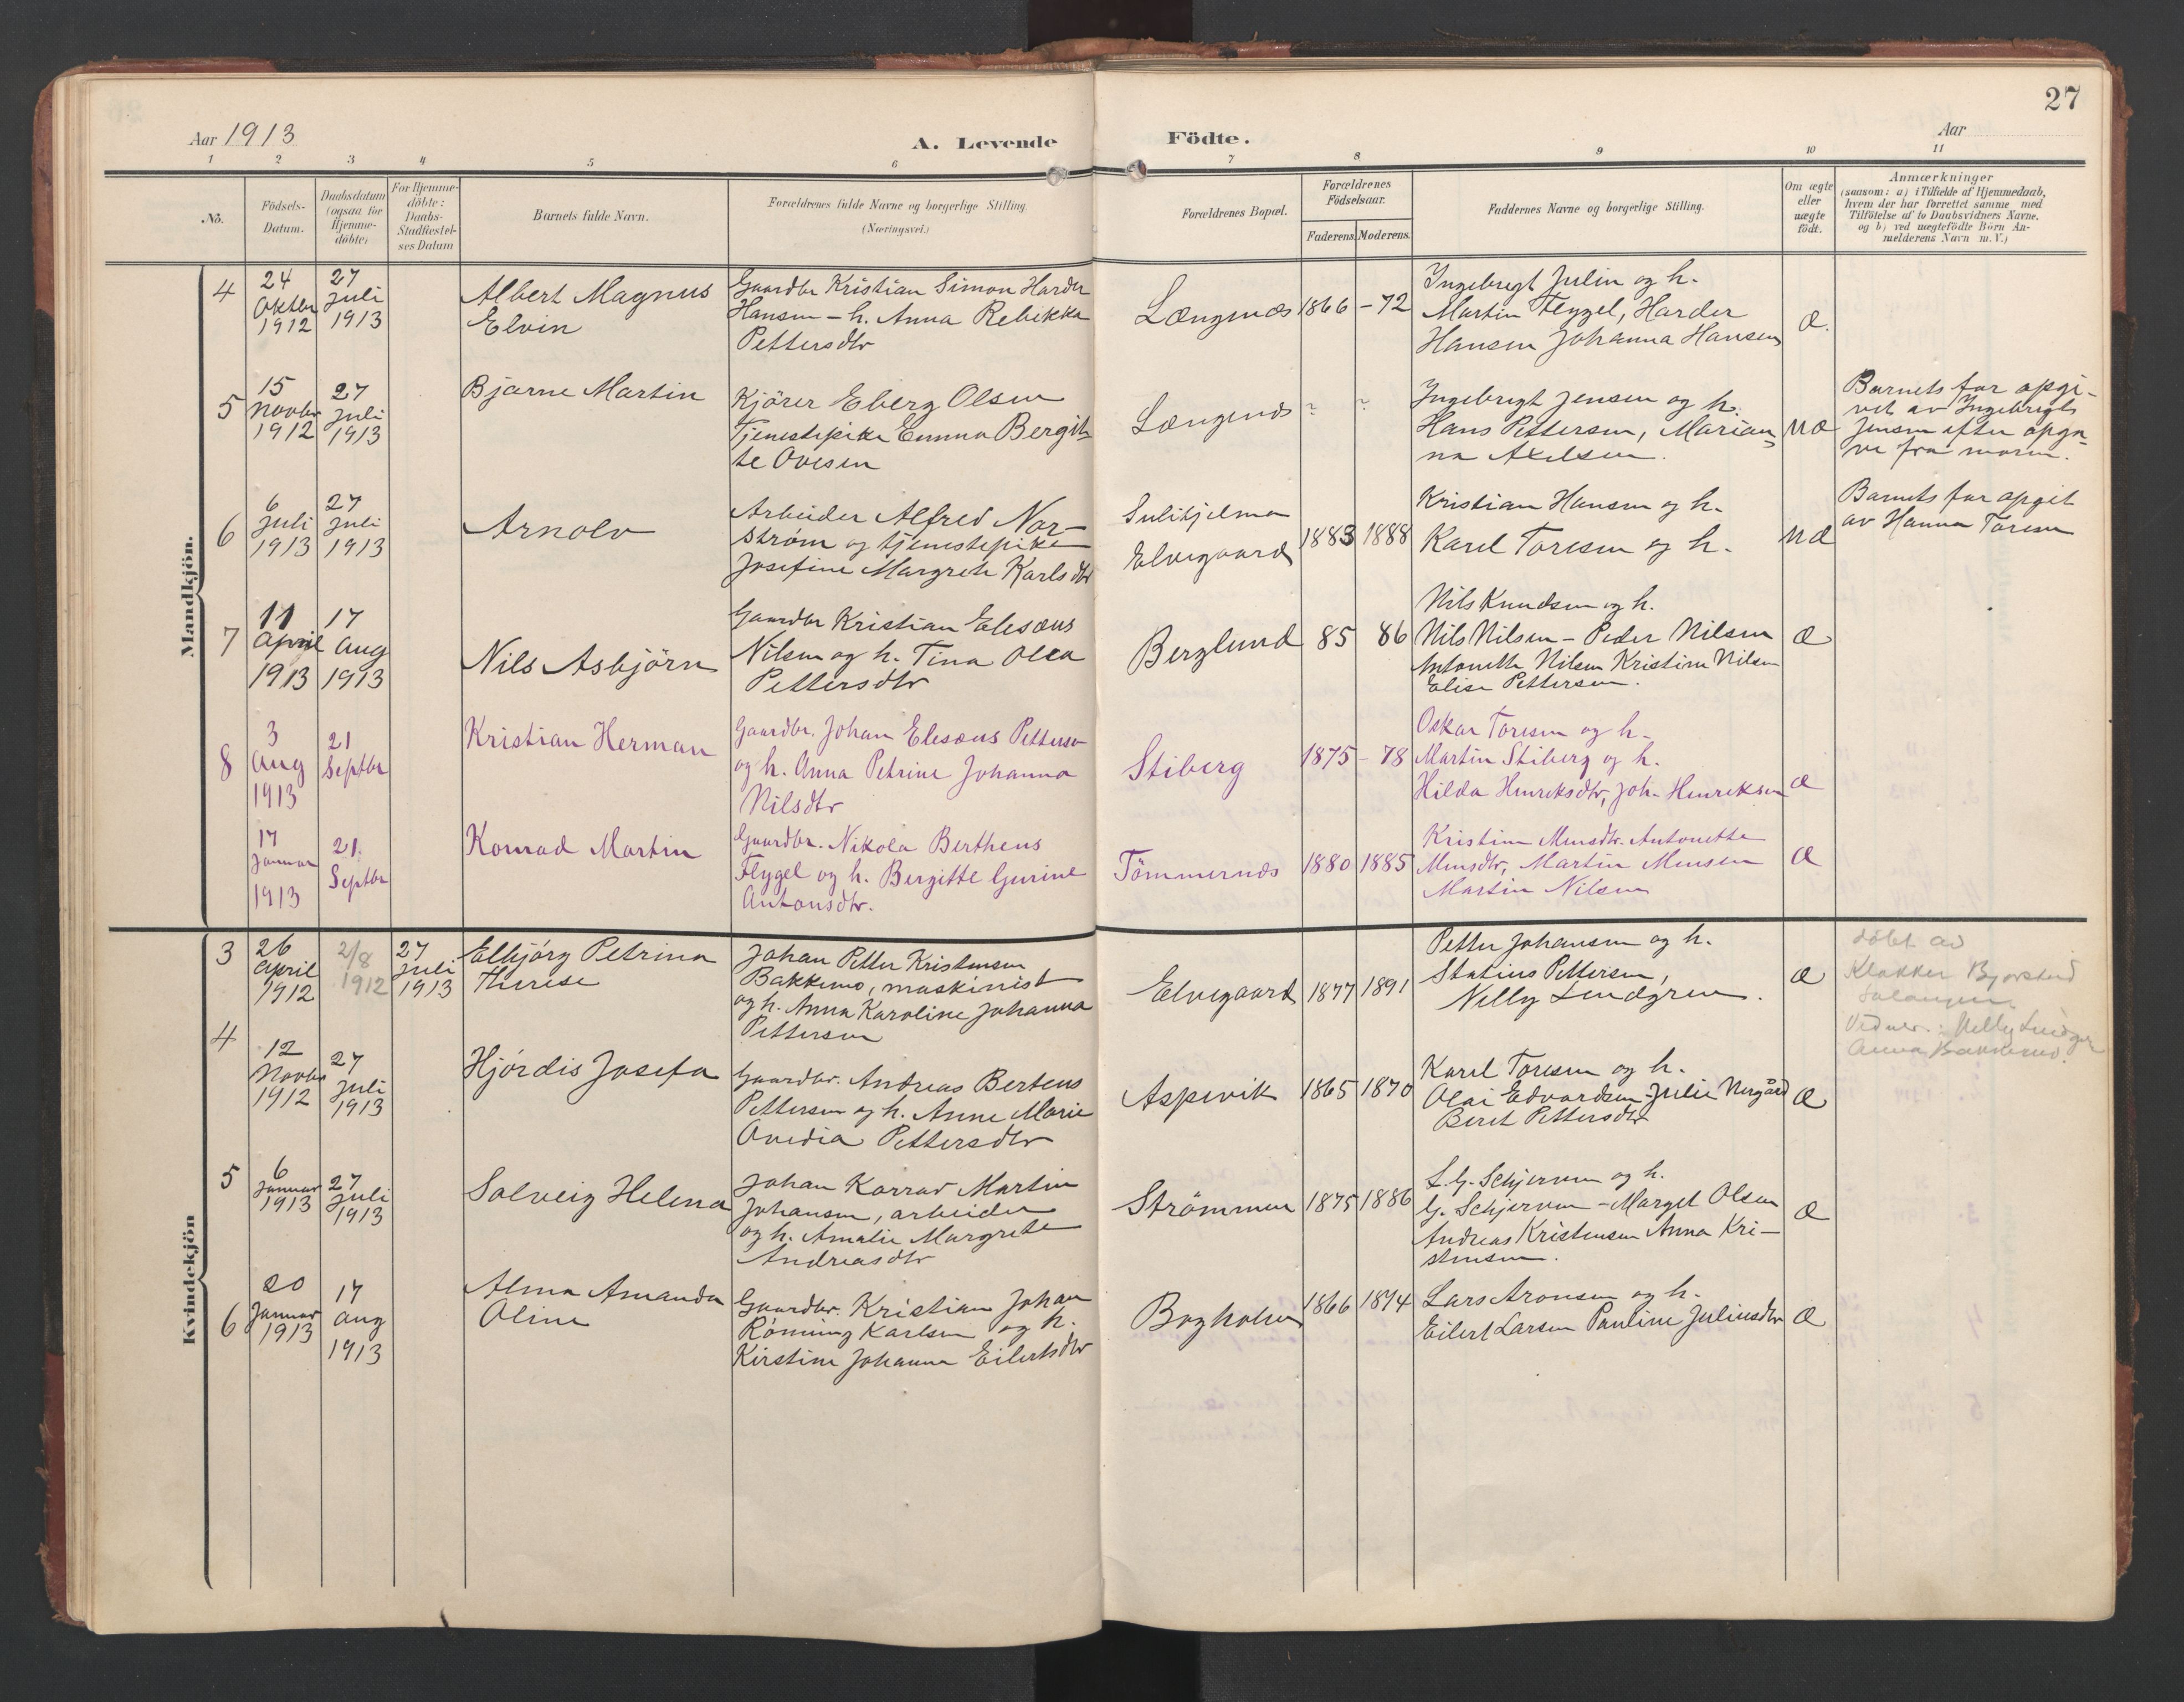 27
Aar 1913
A. Levende Födte.
Aar
1 2 3 4 5 6 7 8 9 10 11
No.
Födsels-Datum.
Daabsdatum (ogsaa for Hjemmedöbte)
For Hjemmedöbte: Daabs-Stadfæstelses Datum
Barnets fulde Navn.
Forældrenes fulde Navne og borgerlige Stilling (Næringsvei.)
Forældrenes Bopæl.
Forældrenes Födselsaar.
Faderens. Moderens.
Faddernes Navne og borgerlige Stilling.
Om ægte eller uægte födt.
Anmærkninger
(saasom: a) i Tilfælde af Hjemmedaab,
hvem der har forrettet samme med
Tilföielse af to Daabsvidners Navne,
og b) ved uægtefödte Börn An-
melderens Navn m. V.)
Mandkjön.
4
24 Oktbr 1912
27 Juli 1913
Albert Magnus
Elvin
Gaardbr Kristian Simon Harder
Hansen – h. Anna Rebekka
Pettersdtr
Længenæs
1866 – 72
Ingebrigt Julin og h.
Martin Flygel, Harder
Hansen Johanna Hansen
Æ.
5
15 Novbr 1912
27 Juli 1913
Bjarne Martin
Kjörer Eberg Olsen
Tjenestepike Emma Bergit-
te Ovesen
Længenæs
? ?
Ingebrigt Jensen og h.
Hans Pettersen, Marian-
na Axelsen.
UÆ
Barnets far opgi-
vet av Ingebrigt
Jensen efter opga-
ve fra moren.
6
6 Juli 1913
27 Juli 1913
Arnolv
Arbeider Alfred Nor-
strøm og tjenestepike
Josefine Margrete Karlsdtr
Sulitjelma
Elvegaard
1883 1888
Kristian Hansen og h.
Karel Toresen og h.
UÆ
Barnets far opgit
av Hanna Toresen
7
11 April 1913
17 Aug 1913
Nils Asbjörn
Gaardbr Kristian Elesæus
Nilsen og h. Tina Olea
Pettersdtr
Berglund
85 86
Nils Knudsen og h.
Nils Nilsen – Peder Nilsen
Antonette Nilsen Kristine Nilsen
Elise Pettersen.
Æ
8
3 Aug 1913
21 Septbr
Kristian Herman
Gaardbr. Johan Elesæus Petterson
og h. Anna Petrine Johanna
Nilsdtr
Stiberg
1875 – 78
Oskar Toresen og h.
Martin Stiberg og h.
Hilda Henriksdtr, Joh. Henriksen
Æ
17 Januar 1913
21. Septbr
Konrad Martin
Gaardbr. Nikolai Berthens
Flygel og h. Bergitte Gurine
Antonsdtr.
Tömmernæs
1880 1885
Kristine Mensdtr. Antonette
Mensdtr, Martin Mensen
Martin Nilsen
Æ
Kvindekjön
3
26 April 1912
2/8 1912
27 Juli 1913
Elbjörg Petrina
Therese
Johan Petter Kristensen
Bakkemo, maskinist
og h. Anna Karoline Johanna
Pettersen
Elvegaard
1877 1891
Petter Johansen og h.
Statius Pettersen,
Nelly Lindgren.
Æ
döbt av
Klokker Bjorstad
Salangen
Vidner: Nelly Lindgren
Anna Bakkemo.
4
12 Novbr 1912
27 Juli 1913
Hjördis Josefa
Gaardbr. Andreas Bertens
Pettersen og h. Anne Marie
Ovedia Pettersdtr
Aspevik
1865 1870
Karel Toresen og h.
Olai Edvardsen – Julie Nergård
Beret Pettersdtr
Æ
5
6 Januar 1913
27 Juli 1913
Solveig Helena
Johan Konrad Martin
Johansen, arbeider
og h. Amalie Margrete
Andreasdtr
Strömmen
1875 1886
L. G. Schjerven og h.
G. Schjerven – Marget Olsen
Andreas Kristensen Anna Kri-
stensen.
Æ
6
20 Januar 1913
17 Aug 1913
Alma Amanda
Oline
Gaardbr. Kristian Johan
Rönning Karlsen og h.
Kirstine Johanna Eilertsdtr
Bogholm
1866 1874
Lars Aronsen og h.
Eilert Larsen Pauline Juliusdtr
Æ